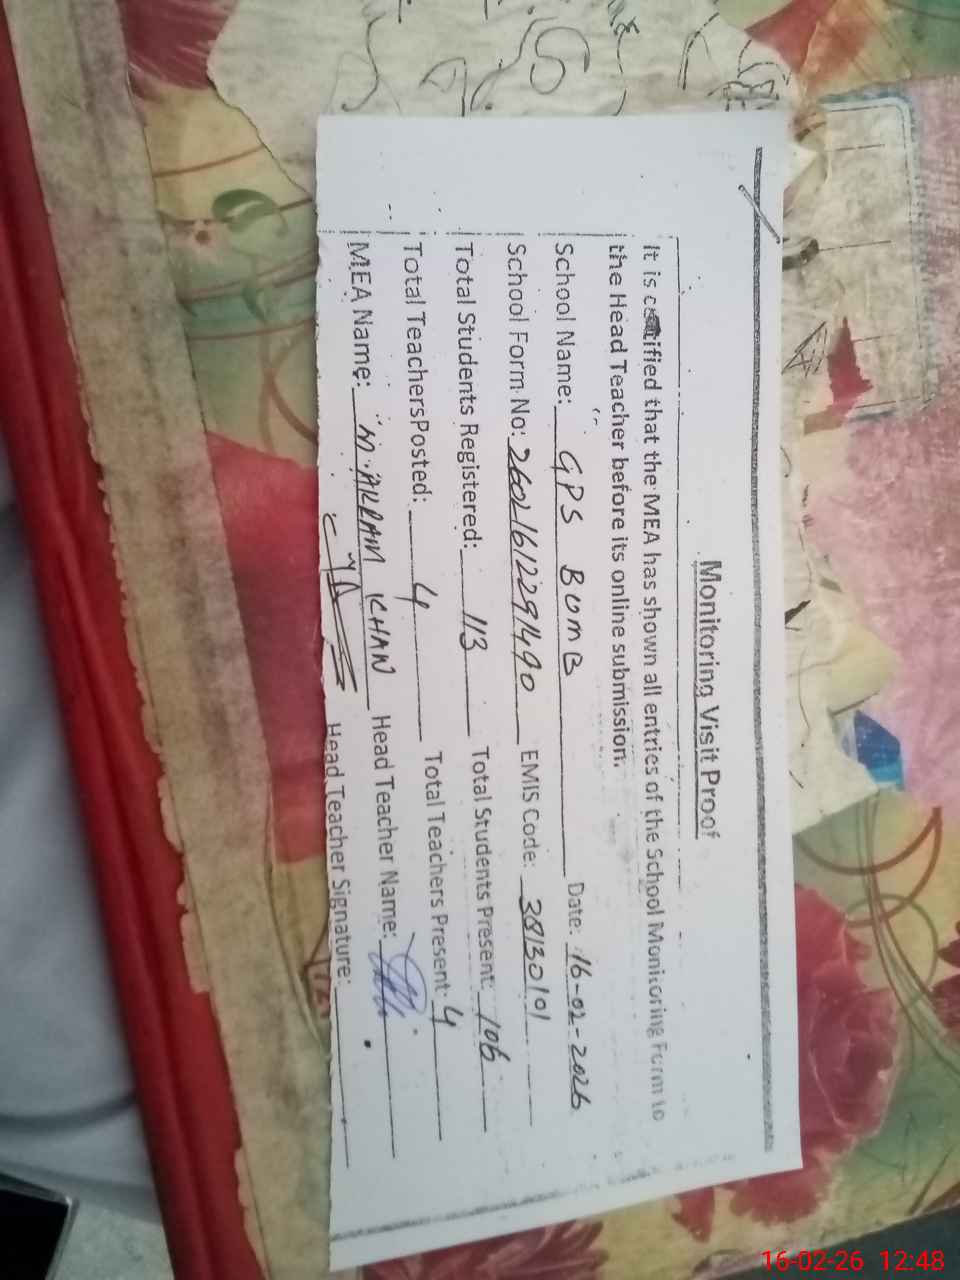 Monitoring Visit Proof
It is certified that the MEA has shown all entries of the School Monitoring Form to
the Head Teacher before its online submission.
School Name: GPS BOMB Date: 16-02-2026
School Form No: 26021612291490 EMIS Code: 38130101
Total Students Registered: 113 Total Students Present: 106
Total Teachers Posted: 4 Total Teachers Present: 4
MEA Name: M. AKRAM KHAN Head Teacher Name:
Head Teacher Signature:
16-02-26 12:48